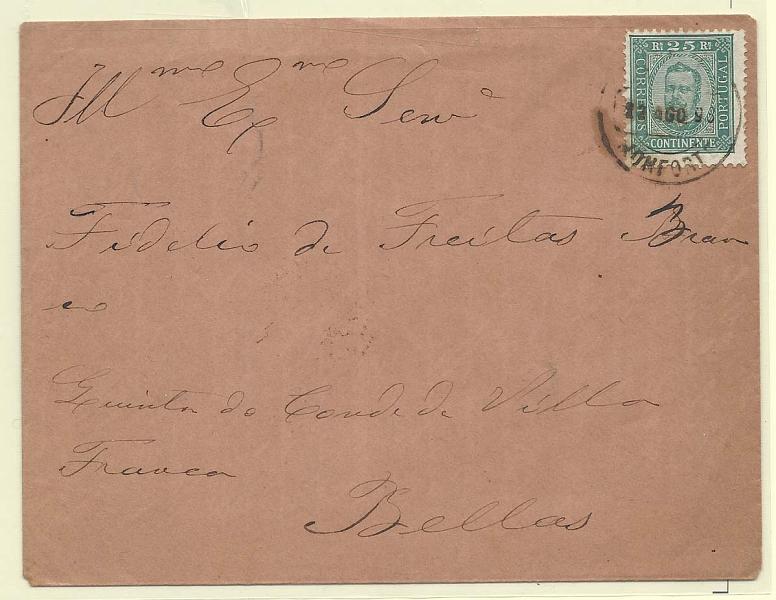 Illmo Exmo Senr
Fidelio de Freitas Bran
co
Quinta do Conde de Villa
Franca
Bellas
RI 25 RI
CORREIOS
PORTUGAL
CONTINENTE
22 AGO 93
MONFORTE